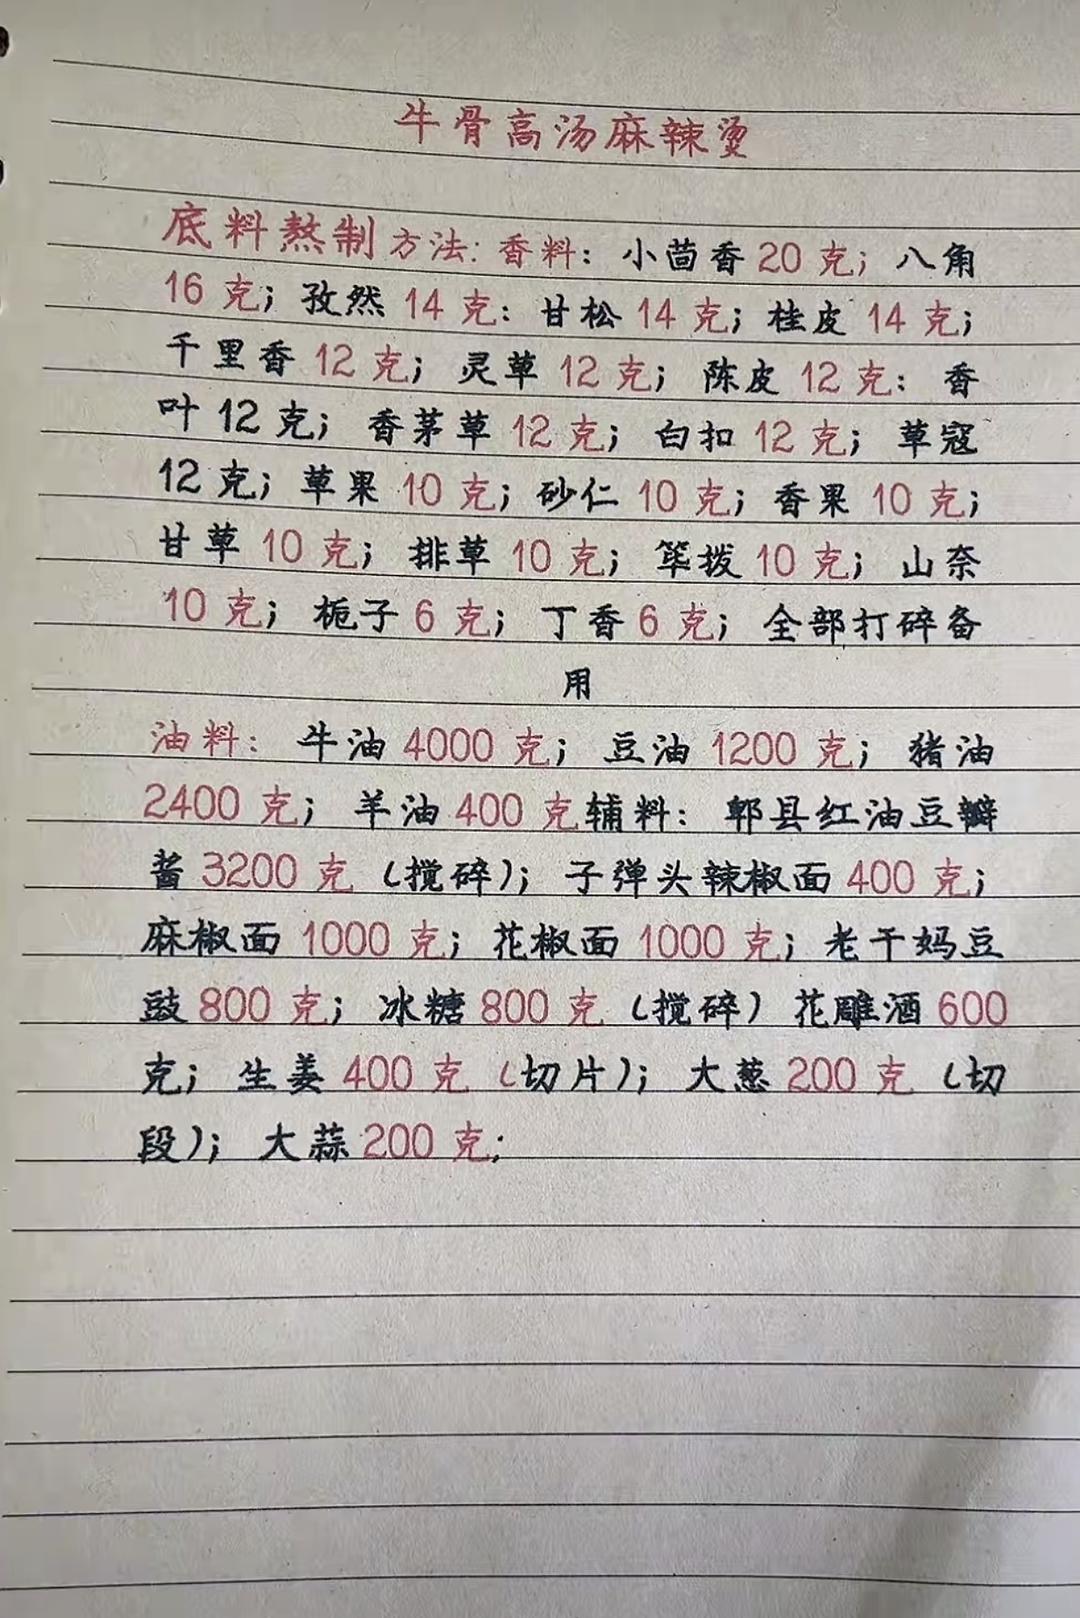 牛骨高汤麻辣烫
底料熬制方法:香料:小茴香20克;八角
16克;孜然14克:甘松14克;桂皮14克;
千里香12克;灵草12克;陈皮12克:香
叶12克;香茅草12克;白扣12克;草寇
12克;草果10克;砂仁10克;香果10克;
甘草10克;排草10克;筚拨10克;山奈
10克;栀子6克;丁香6克;全部打碎备
用
油料:牛油4000克;豆油1200克;猪油
2400克;羊油400克辅料:郫县红油豆瓣
酱3200克(搅碎);子弹头辣椒面400克;
麻椒面1000克;花椒面1000克;老干妈豆
豉800克;冰糖800克(搅碎)花雕酒600
克;生姜400克(切片);大葱200克(切
段);大蒜200克;